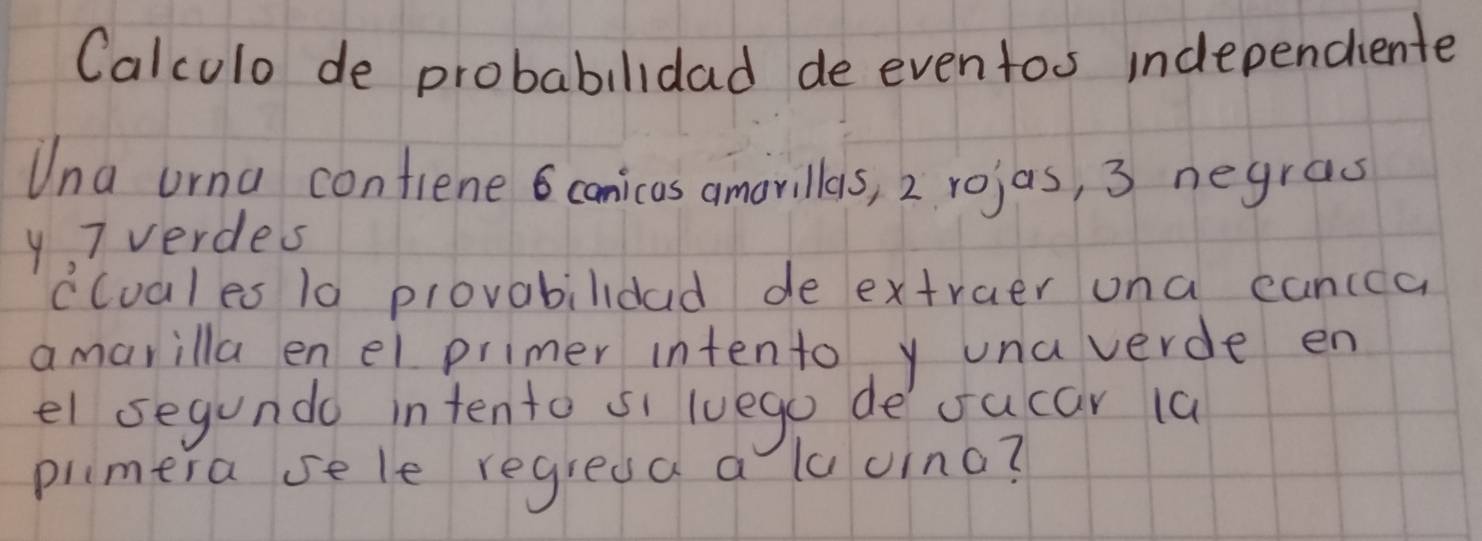 Calculo de probabilidad de eventos independiente
Una urna contiene 6 canicas amarillas, 2 rojas, 3 negras
y 7 verdes
¿Cual es la provabilidad de extraer una canica
amarilla en el primer intento y una verde en
el segundo intento si luego de sacar la
primera se le regresa a la urna?